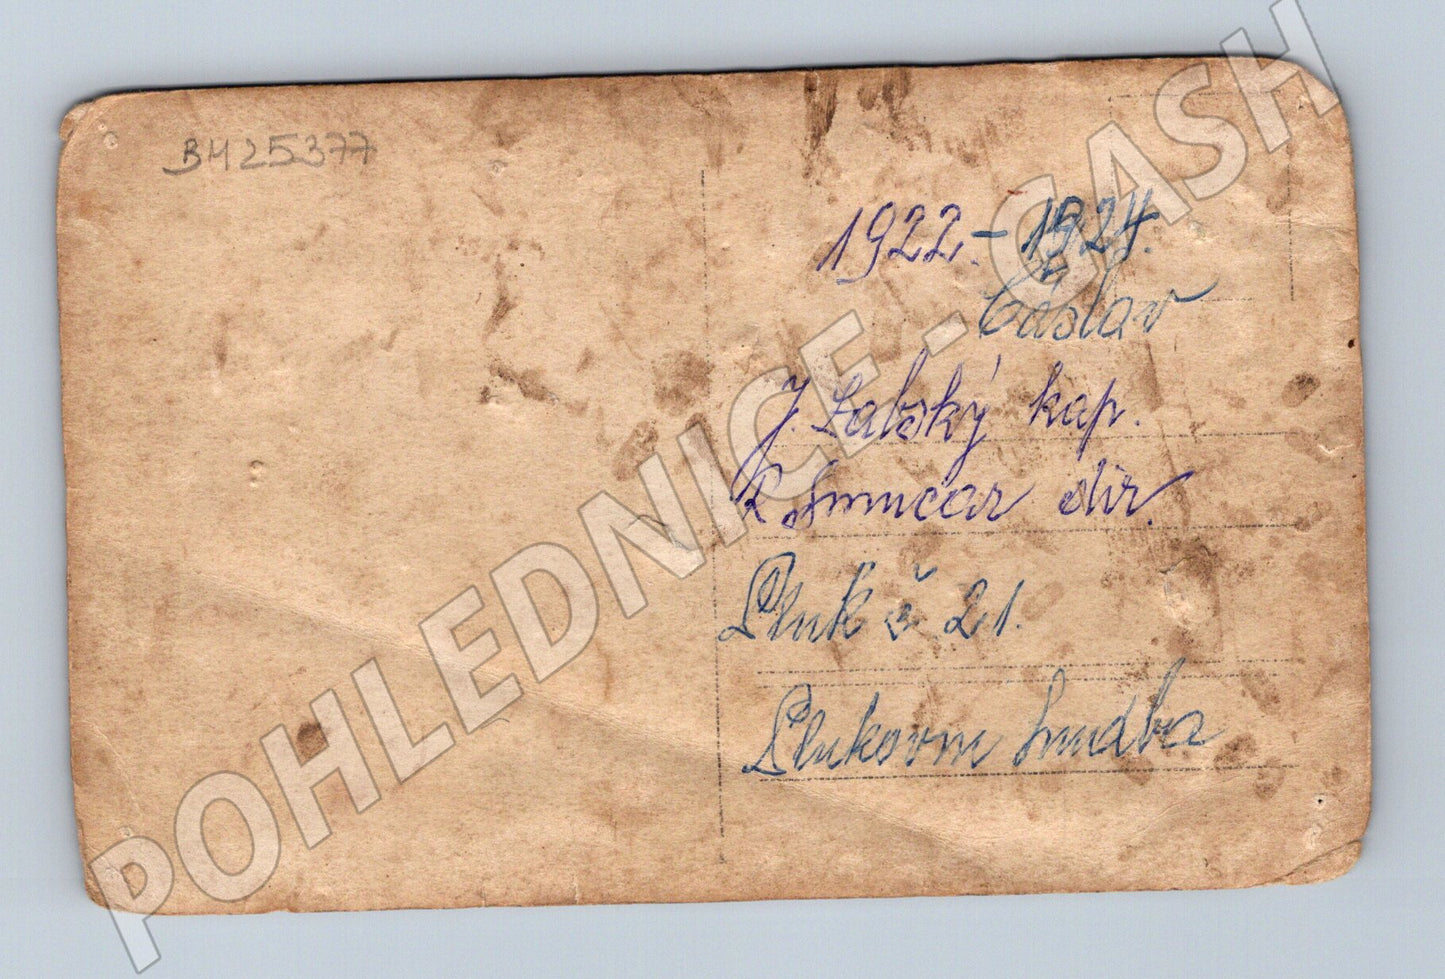 BH25377
1922. - 1924.
Čáslav
J. Labský kap.
R. Smucar dir.
Pluk č 21.
Plukovní hudba
POHLEDNICE - CASH